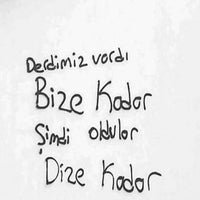 Derdimiz vardı
Bize Kadar
Şimdi oldular
Dize Kadar